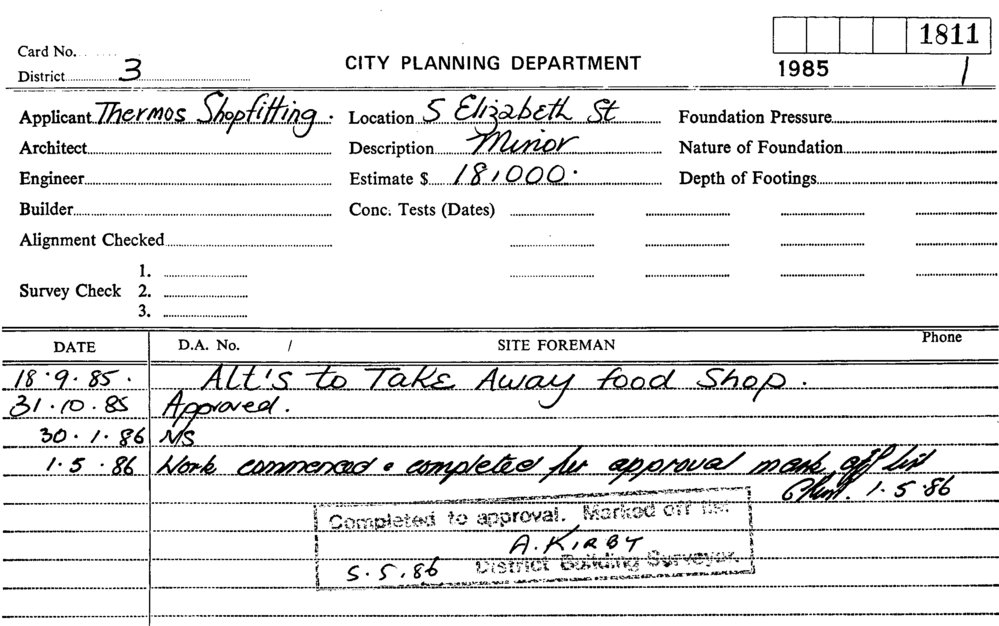 1811
Card No.
1985 1
District 3
CITY PLANNING DEPARTMENT
Applicant Thermos Shopfitting. Location 5 Elizabeth St Foundation Pressure
Architect Description Minor Nature of Foundation
Engineer Estimate $ 18,000. Depth of Footings
Builder Conc. Tests (Dates)
Alignment Checked
1.
Survey Check 2.
3.
DATE D.A. No. / SITE FOREMAN Phone
18.9.85. Alt's to Take Away food Shop.
31.10.85 Approved.
30.1.86 NS
1.5.86 Work commenced & completed for approval mark off list
1.5.86
Completed to approval. Marked off list
A. KIRBY
5.5.86 District Building Surveyor.